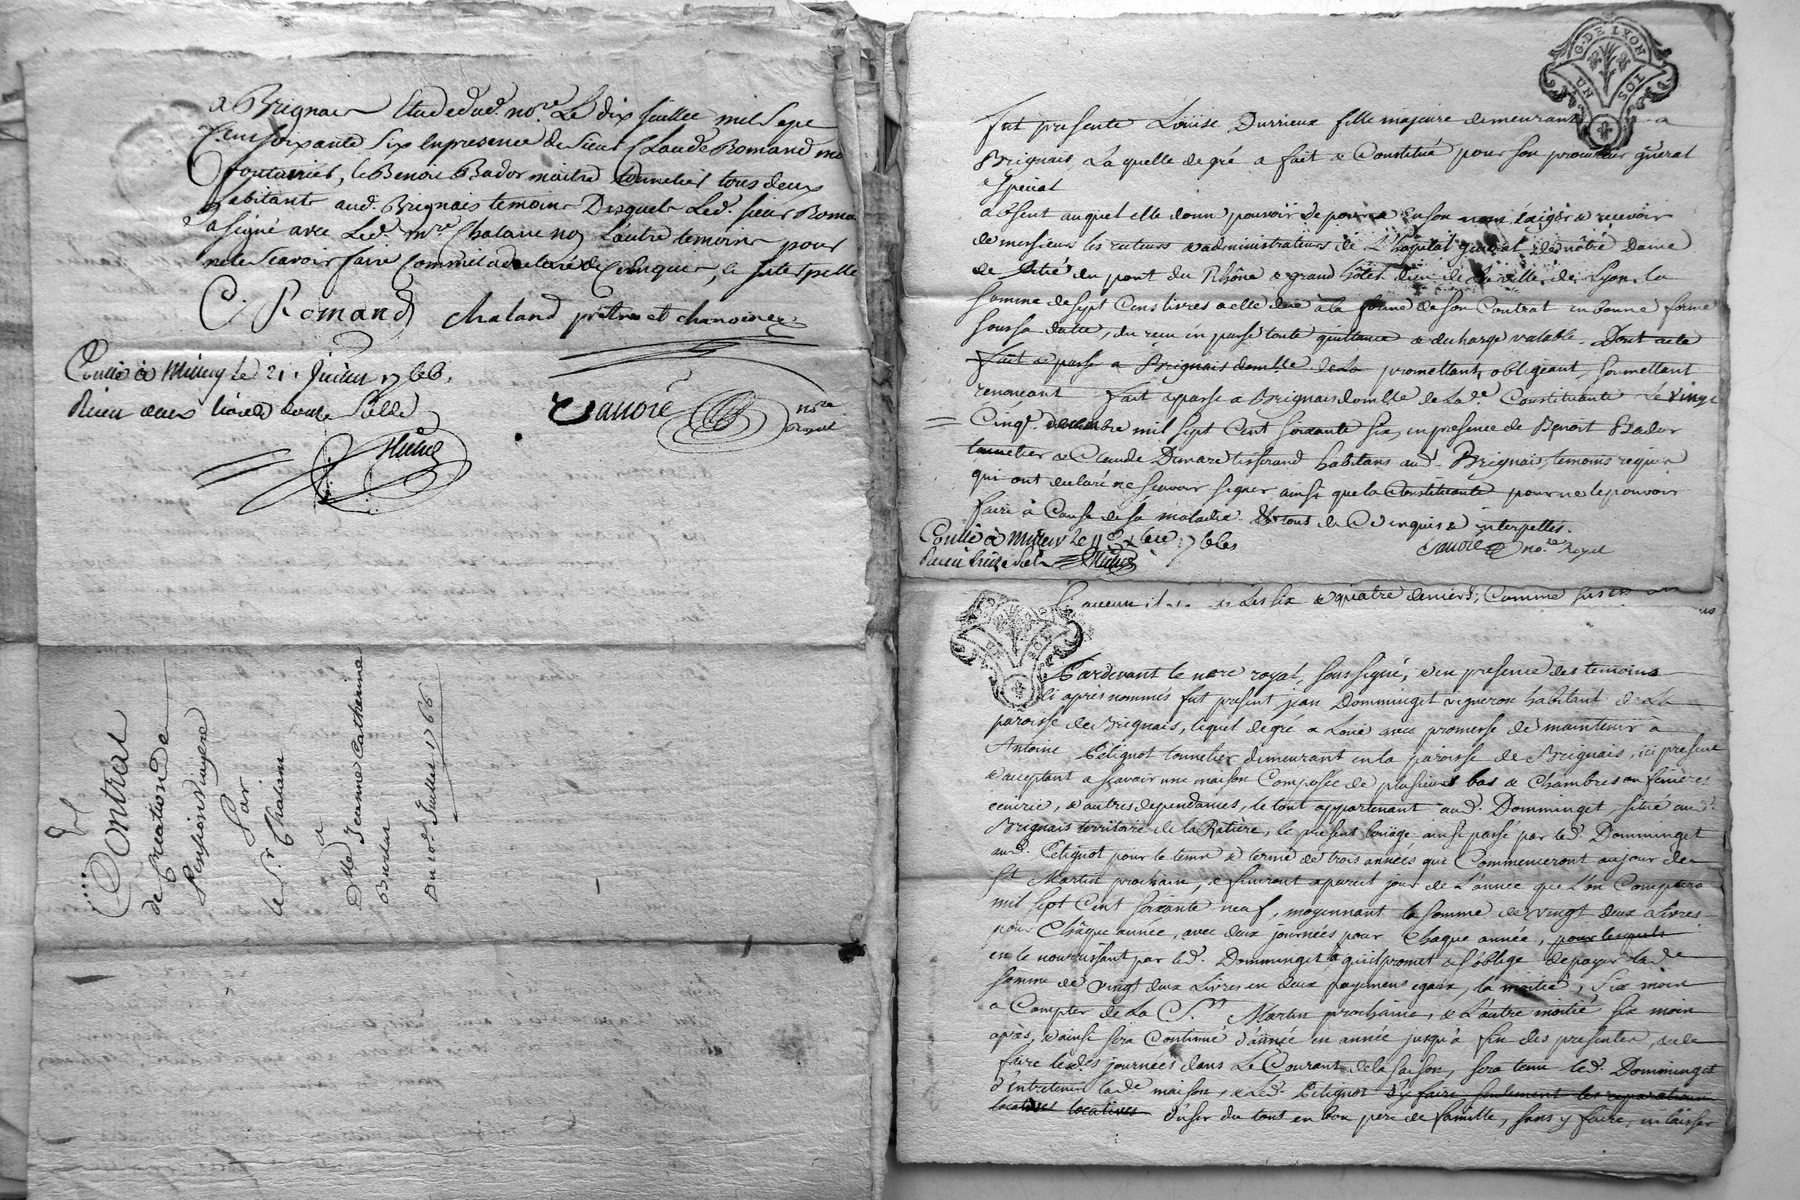 a Brignais Etude dud. nore. Le dix juillet mil sept
cent soixante six En presence de sieur Claude Romand me
, et Benoit Bador maitre tonnelier tous deux
habitants aud. Brignais temoins Desquels Led. sieur Roman
a signé avec Led. mre Chaland non L'autre temoin pour
ne le scavoir faire comme il a declaré de ce enquis, et interpellé
C. Romand
chaland prêtre et chanoine
Conllé à Millery le 21. Juillet 1766.
Reçeu deux livres douze sols
nore
royal
Contrat
de Creation de
Pension Viagere
Par
le Sr Chaland
a
Dlle Jeanne Catherine
Du 10e Juillet 1766
G. DE LYON
UN SOL
fut presente Loüise Durrieux fille majeure demeurant a
Brignais, Laquelle de gré a fait & Constitué pour son procureur gñeral
Special
auquel elle donne pouvoir de pour & En son nom Exiger & recevoir
de messieurs les recteurs & administrateurs de L'hopital general de nôtre Dame
de Pitié du pont du Rhône & grand hôtel dieu de la ville de Lyon, la
somme de sept Cens livres a elle düe à la forme de son Contrat en bonne forme
sous sa datte, du receu en passer toute quittance & decharge valable. Dont acte
fait & passé a Brignais domlle de La promettant, obligeant, soumettant
renonçant fait & passé a Brignais domlle de La de. Constituante Le vingt
Cinq. mil sept Cent soixante six, en presence de Benoit Bador
tonnelier & Claude Dimare tisserand habitans aud. Brignais, temoins requis
qui ont declaré ne scavoir signer ainsi que la Constituante pour ne le pouvoir
faire à Cause de sa maladie. de Ce Enquis & interpellés.
Conllé à Millery le
Reçeu treize sols
nore. royal
& quatre deniers; Comme
Pardevant le nore royal, soussigné, & en presence des temoins
ci après nommés fut present jean Domminget vigneron habitant de La
paroisse de Brignais, lequel de gré a Loüé avec promesse de maintenir a
Antoine Petignot tonnelier demeurant en la paroisse de Brignais, ici present
& acceptant a scavoir une maison Composée de plusieurs bas & Chambres au
ecurie, & autres dependances, le tout appartenant aud. Domminget situé aud.
Brignais territoire de la Ratiere, le present loüage ainsi passé par led. Domminget
aud. Petignot pour le tems & terme de trois années qui Commenceront au jour de
St Martin prochain, & finiront a pareil jour de L'année que L'on Comptera
mil sept Cent soixante neuf, moyennant la somme de vingt deux Livres
pour Chaque année, avec deux journées pour Chaque année, pour lesquels
en le nourrissant par led. Domminget qu'il promet & s'oblige de payer lade
somme de vingt deux Livres en deux payemens egaux, la moitié, Six mois
a Compter de La St. Martin prochaine, & L'autre moitié six mois
après, & ainsi sera Continué d'année en année jusqu'à fin des presentes, & de
faire lesd. journées dans Le Courant de la saison, sera tenu led. Domminget
d'entretenir lade maison, & Led. Petignot d'y faire seulement les reparations
locatives locatives d'user du tout en bon pere de famille, sans y faire, ni laisser